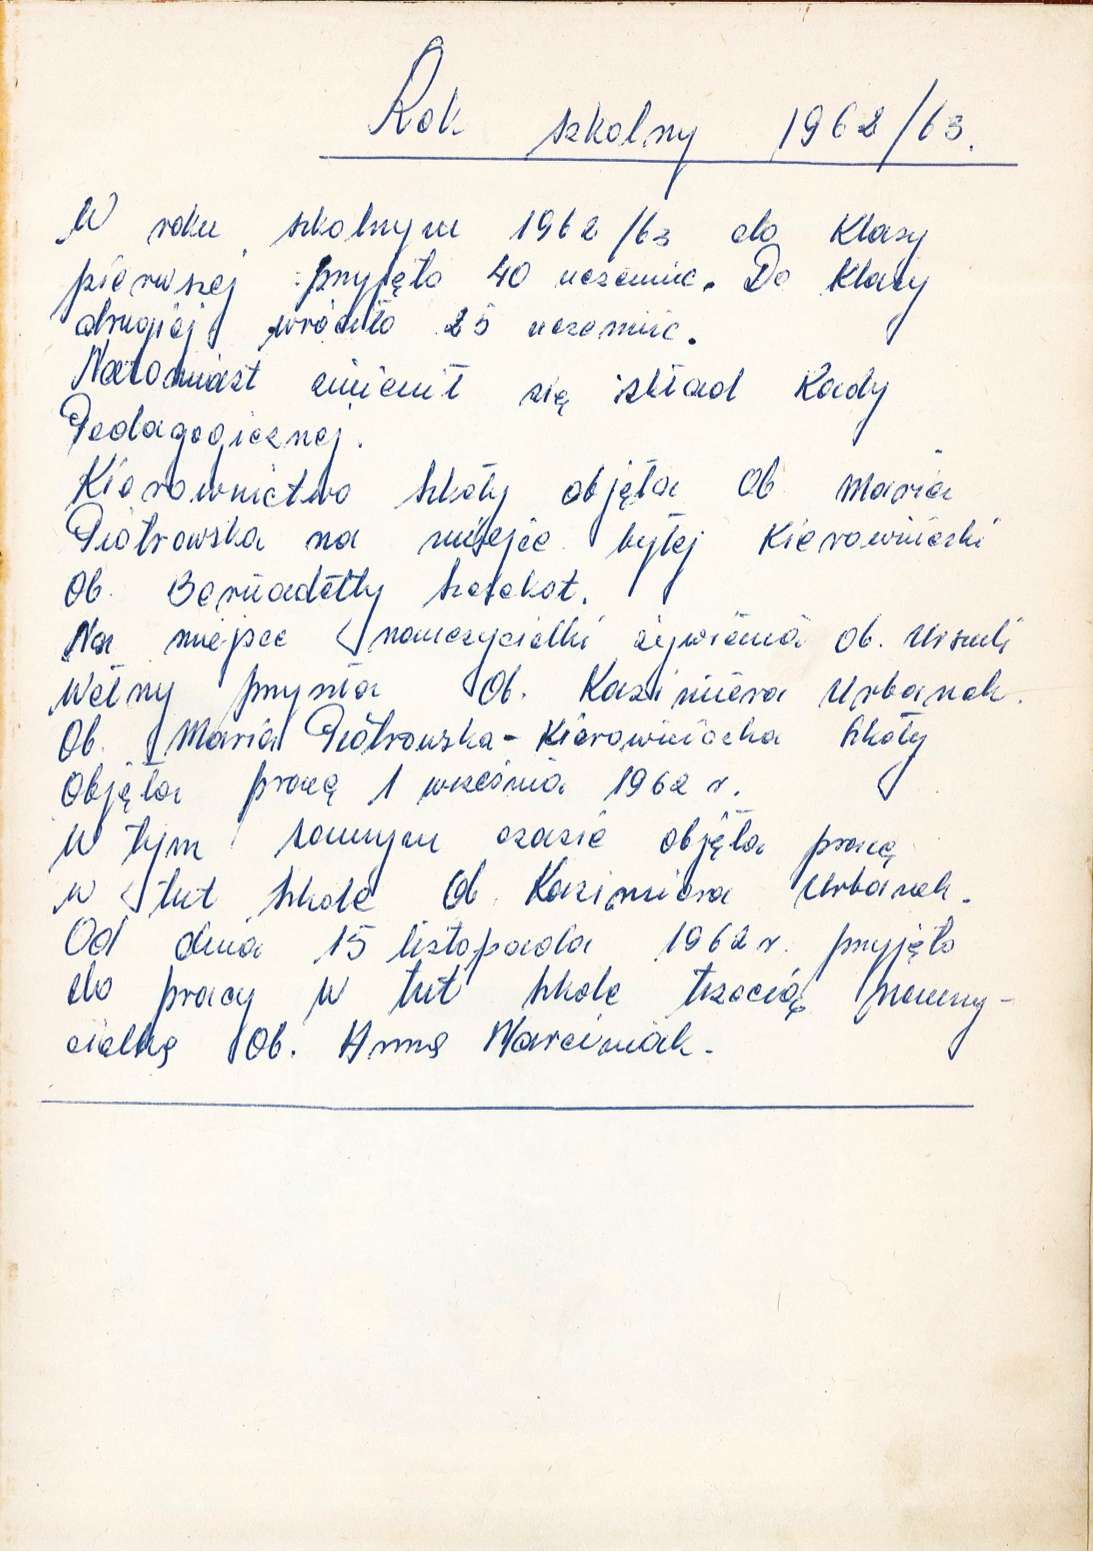 Rok szkolny 1962/63.
W roku szkolnym 1962/63 do Klasy
pierwszej przyjęto 40 uczennic. Do Klasy
drugiej wróciło 25 uczennic.
Natomiast zmienił się skład Rady
Pedagogicznej.
Kierownictwo szkoły objęła Ob Maria
Piotrowska na miejsce byłej Kierowniczki
Ob. Bernadetty
Na miejsce nauczycielki żywienia Ob. Urszuli
Wełny przyszła Ob. Kazimiera Urbanek.
Ob. Maria Piotrowska - Kierowniczka szkoły
Objęła pracę 1 września 1962 r.
W tym samym czasie objęła pracę
w tut szkole Ob. Kazimiera Urbanek.
Od dnia 15 listopada 1962 r. przyjęto
do pracy w tut szkole trzecią nauczy-
cielkę Ob. Annę Marciniak.